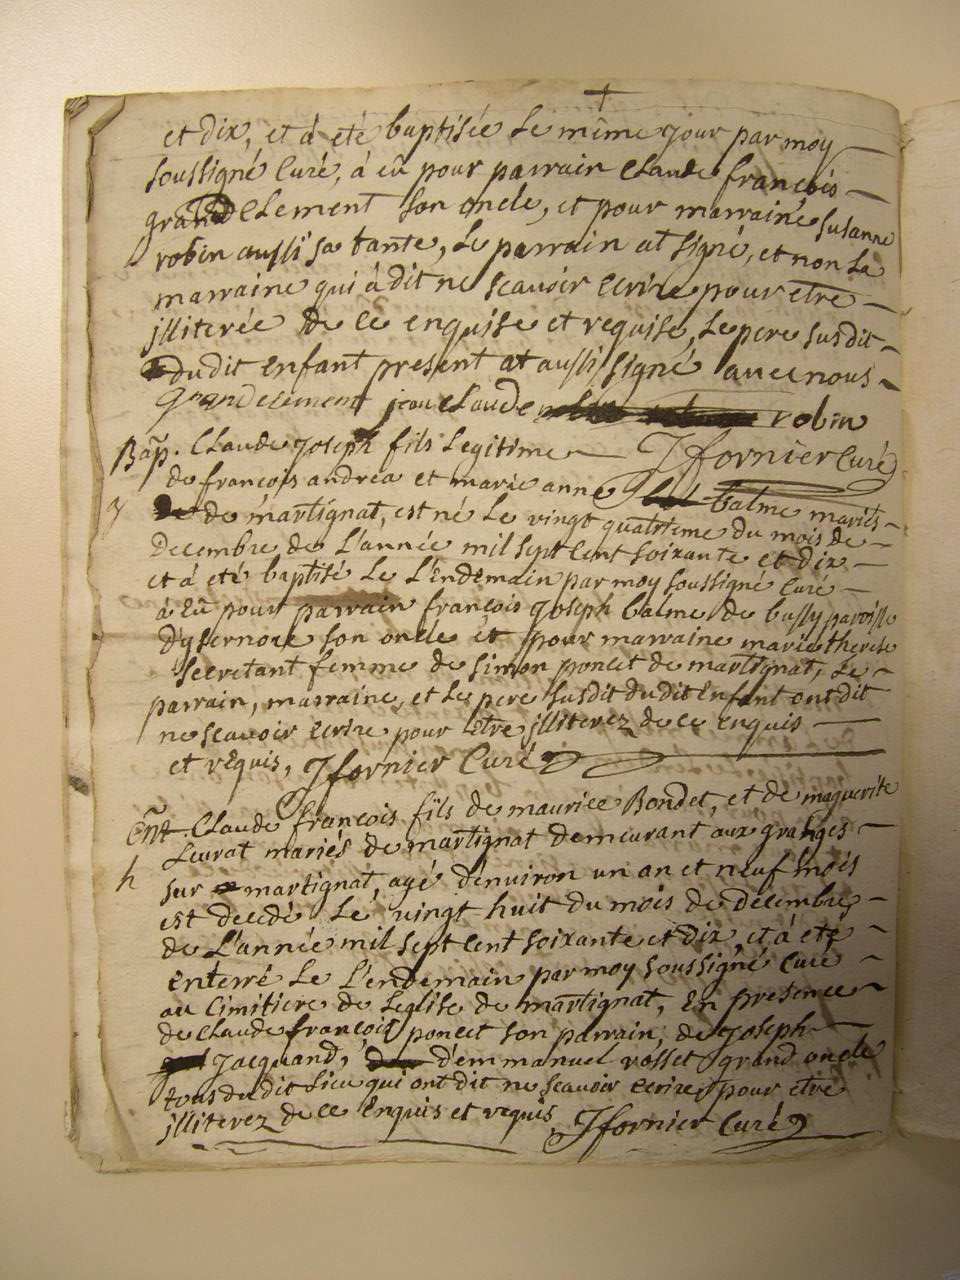 et dix, et à eté baptisée Le même jour par moy
soussigné Curé, à eû pour parrain Claude françois
grandClement son oncle, et pour marraine susanne
robin aussi sa tante, Le parrain at signé, et non La
marraine qui à dit ne scavoir ecrire pour etre
jlliterée de ce enquise et requise, Le pere susdit
dudit enfant present at aussi signé avec nous
Grandclement jean Claude robin
Bap. Claude joseph fils Legitime Jfornier Curé
de françois andrea et marie anne balme mariés
3 de martignat, est né Le vingt quatrieme du mois de
decembre de L'année mil sept cent soixante et dix
et à eté baptisé Le L'endemain par moy soussigné Curé
à eû pour parrain françois joseph balme de bussy paroisse
Dysernore son oncle et pour marraine marie therese
secretant femme de simon poncet de martignat, Le
parrain, marraine, et Le pere susdit dudit Enfant ont dit
ne scavoir ecrire pour etre jlliterez de ce enquis
et requis, Jfornier Curé
Ent. Claude françois fils de maurice Bondet, et de maguerite
Levrat mariés de martignat demeurant aux granges
h sur martignat, agé denviron un an et neuf mois
est decedé Le vingt huit du mois de decembre
de L'année mil sept cent soixante et dix, et à eté
enterré Le L'endemain par moy soussigné Curé
au Cimitiere de Leglise de martignat, En presence
de Claude françois poncet son parrain, de joseph
jacquand, d'emmanuel rosset grand oncle
tous dudit Lieu qui ont dit ne scavoir ecrire pour etre
jlliterez de ce enquis et requis Jfornier Curé